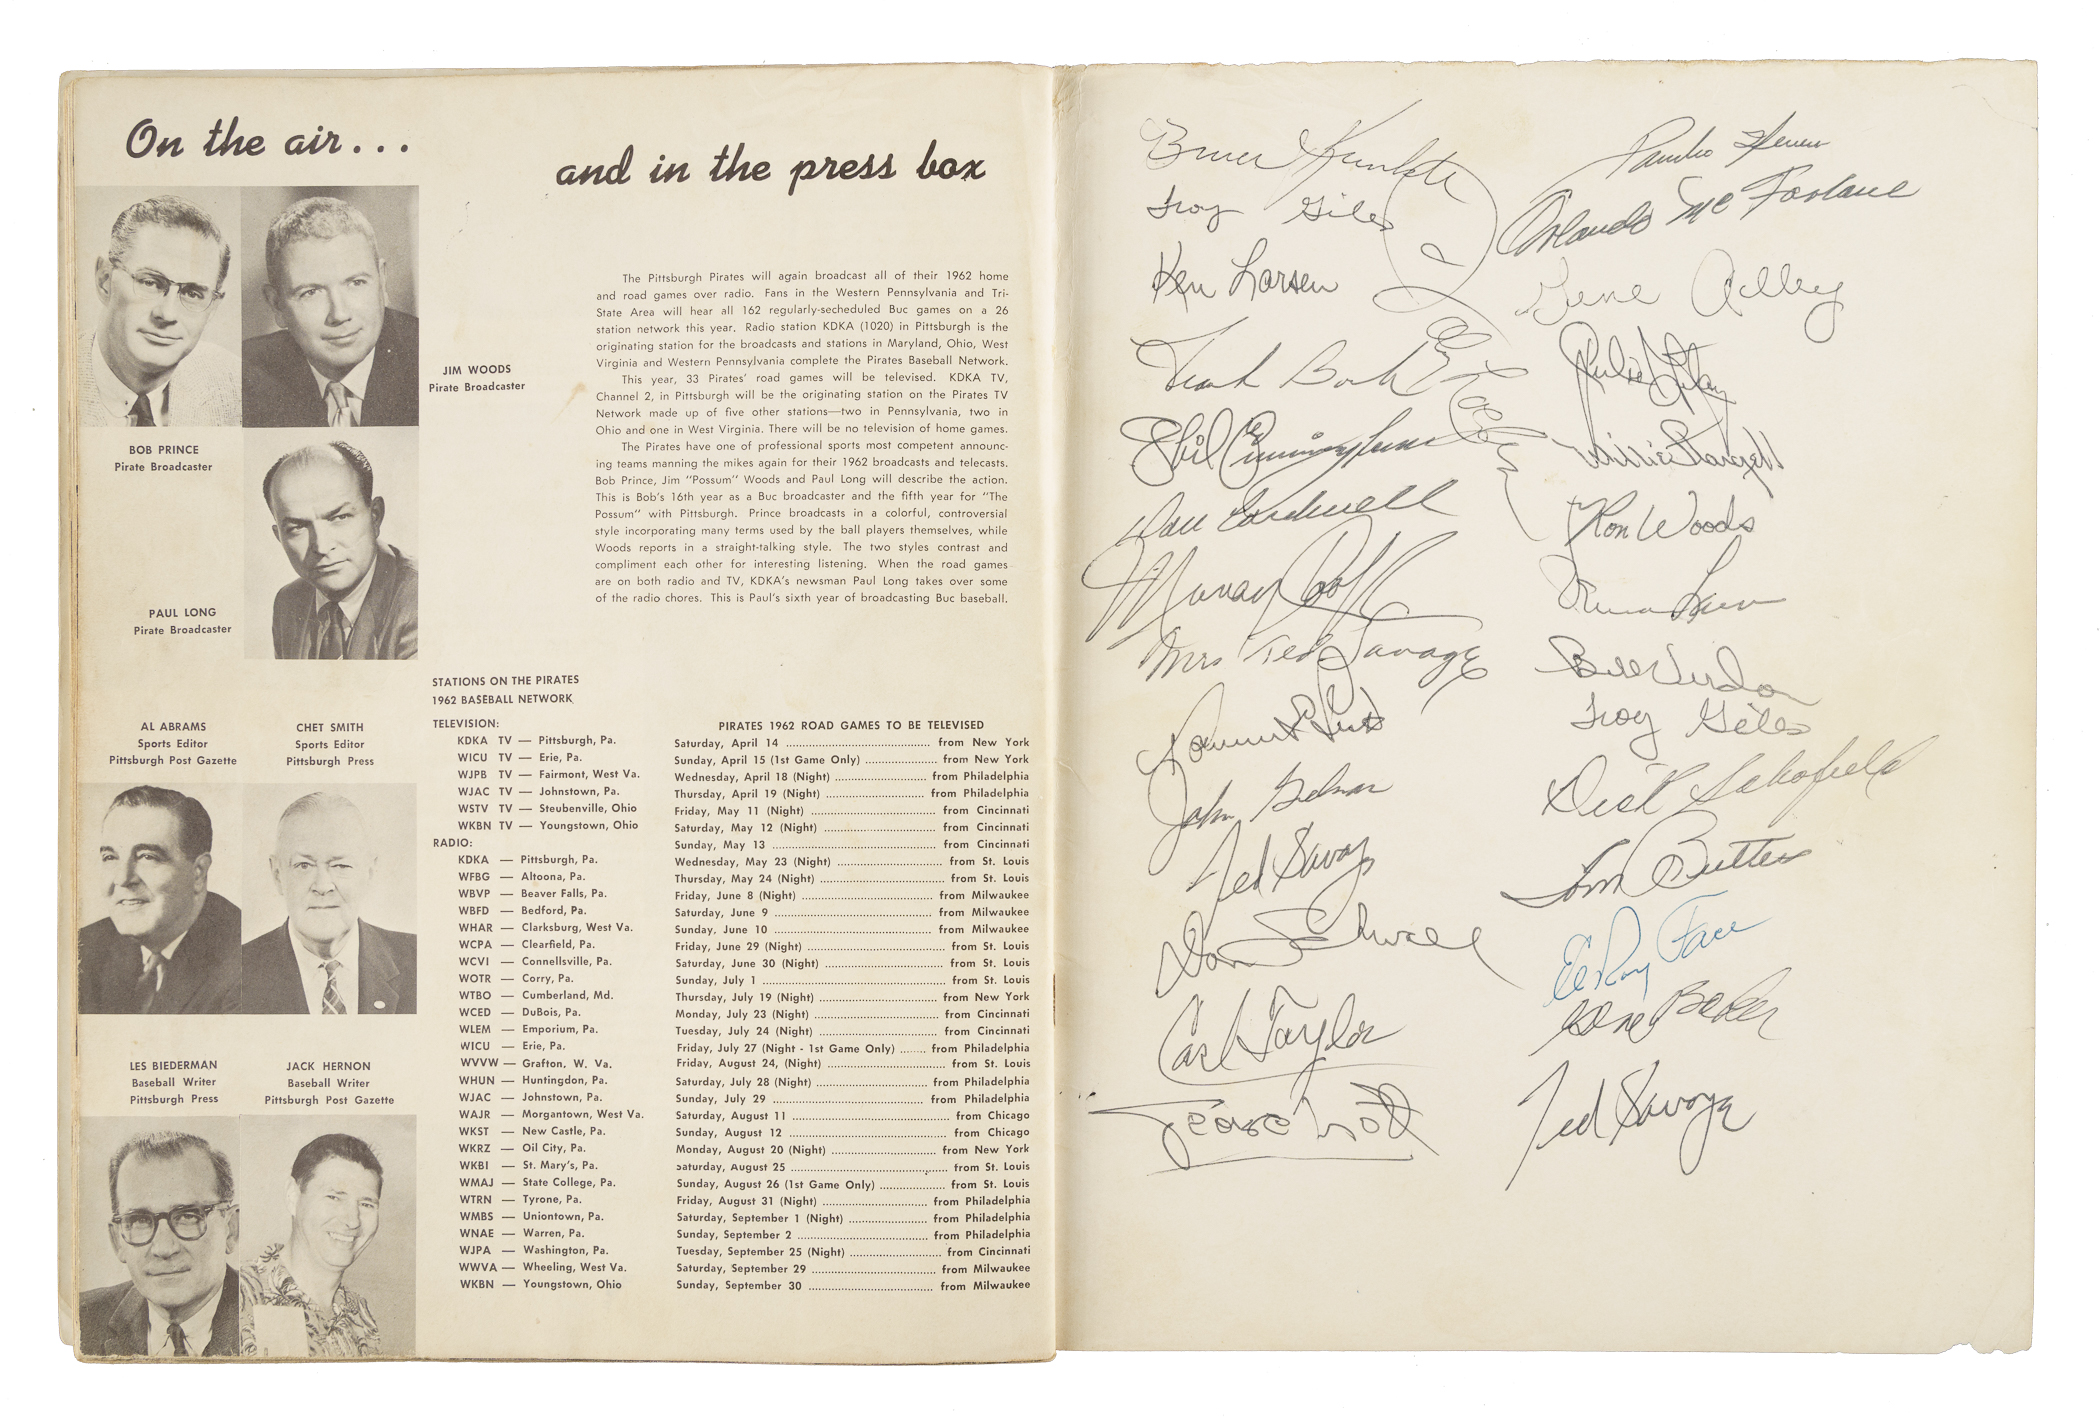 On the air...
and in the press box
JIM WOODS
Pirate Broadcaster
BOB PRINCE
Pirate Broadcaster
PAUL LONG
Pirate Broadcaster
The Pittsburgh Pirates will again broadcast all of their 1962 home
and road games over radio. Fans in the Western Pennsylvania and Tri-
State Area will hear all 162 regularly-secheduled Buc games on a 26
station network this year. Radio station KDKA (1020) in Pittsburgh is the
originating station for the broadcasts and stations in Maryland, Ohio, West
Virginia and Western Pennsylvania complete the Pirates Baseball Network.
This year, 33 Pirates' road games will be televised. KDKA TV,
Channel 2, in Pittsburgh will be the originating station on the Pirates TV
Network made up of five other stations—two in Pennsylvania, two in
Ohio and one in West Virginia. There will be no television of home games.
The Pirates have one of professional sports most competent announc-
ing teams manning the mikes again for their 1962 broadcasts and telecasts.
Bob Prince, Jim "Possum" Woods and Paul Long will describe the action.
This is Bob's 16th year as a Buc broadcaster and the fifth year for "The
Possum" with Pittsburgh. Prince broadcasts in a colorful, controversial
style incorporating many terms used by the ball players themselves, while
Woods reports in a straight-talking style. The two styles contrast and
compliment each other for interesting listening. When the road games
are on both radio and TV, KDKA's newsman Paul Long takes over some
of the radio chores. This is Paul's sixth year of broadcasting Buc baseball.
AL ABRAMS
Sports Editor
Pittsburgh Post Gazette
CHET SMITH
Sports Editor
Pittsburgh Press
LES BIEDERMAN
Baseball Writer
Pittsburgh Press
JACK HERNON
Baseball Writer
Pittsburgh Post Gazette
STATIONS ON THE PIRATES
1962 BASEBALL NETWORK
TELEVISION:
KDKA TV — Pittsburgh, Pa.
WICU TV — Erie, Pa.
WJPB TV — Fairmont, West Va.
WJAC TV — Johnstown, Pa.
WSTV TV — Steubenville, Ohio
WKBN TV — Youngstown, Ohio
RADIO:
KDKA — Pittsburgh, Pa.
WFBG — Altoona, Pa.
WBVP — Beaver Falls, Pa.
WBFD — Bedford, Pa.
WHAR — Clarksburg, West Va.
WCPA — Clearfield, Pa.
WCVI — Connellsville, Pa.
WOTR — Corry, Pa.
WTBO — Cumberland, Md.
WCED — DuBois, Pa.
WLEM — Emporium, Pa.
WICU — Erie, Pa.
WVVW — Grafton, W. Va.
WHUN — Huntingdon, Pa.
WJAC — Johnstown, Pa.
WAJR — Morgantown, West Va.
WKST — New Castle, Pa.
WKRZ — Oil City, Pa.
WKBI — St. Mary's, Pa.
WMAJ — State College, Pa.
WTRN — Tyrone, Pa.
WMBS — Uniontown, Pa.
WNAE — Warren, Pa.
WJPA — Washington, Pa.
WWVA — Wheeling, West Va.
WKBN — Youngstown, Ohio
PIRATES 1962 ROAD GAMES TO BE TELEVISED
Saturday, April 14 ........ from New York
Sunday, April 15 (1st Game Only) ........ from New York
Wednesday, April 18 (Night) ........ from Philadelphia
Thursday, April 19 (Night) ........ from Philadelphia
Friday, May 11 (Night) ........ from Cincinnati
Saturday, May 12 (Night) ........ from Cincinnati
Sunday, May 13 ........ from Cincinnati
Wednesday, May 23 (Night) ........ from St. Louis
Thursday, May 24 (Night) ........ from St. Louis
Friday, June 8 (Night) ........ from Milwaukee
Saturday, June 9 ........ from Milwaukee
Sunday, June 10 ........ from Milwaukee
Friday, June 29 (Night) ........ from St. Louis
Saturday, June 30 (Night) ........ from St. Louis
Sunday, July 1 ........ from St. Louis
Thursday, July 19 (Night) ........ from New York
Monday, July 23 (Night) ........ from Cincinnati
Tuesday, July 24 (Night) ........ from Cincinnati
Friday, July 27 (Night - 1st Game Only) ........ from Philadelphia
Friday, August 24, (Night) ........ from St. Louis
Saturday, July 28 (Night) ........ from Philadelphia
Sunday, July 29 ........ from Philadelphia
Saturday, August 11 ........ from Chicago
Sunday, August 12 ........ from Chicago
Monday, August 20 (Night) ........ from New York
Saturday, August 25 ........ from St. Louis
Sunday, August 26 (1st Game Only) ........ from St. Louis
Friday, August 31 (Night) ........ from Philadelphia
Saturday, September 1 (Night) ........ from Philadelphia
Sunday, September 2 ........ from Philadelphia
Tuesday, September 25 (Night) ........ from Cincinnati
Saturday, September 29 ........ from Milwaukee
Sunday, September 30 ........ from Milwaukee
Troy Giles
Ken Larsen
Frank Bork
Don Cardwell
Mrs Ted Savage
John Gelnar
Ted Savage
Don Schwall
Carl Taylor
Orlando McFarlane
Gene Alley
Willie Stargell
Ron Woods
Bill Virdon
Troy Giles
Dick Schofield
Tom Butters
ElRoy Face
Gene Baker
Ted Savage